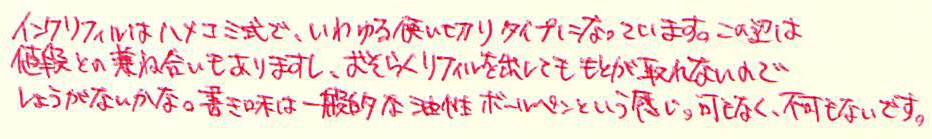 インクリフィルはハメコミ式で、いわゆる使い切りタイプになっています。この辺は
値段との兼ね合いもありますし、おそらくリフィルを出してももとが取れないので
しょうがないかな。書き味は一般的な油性ボールペンという感じ。可もなく、不可もないです。